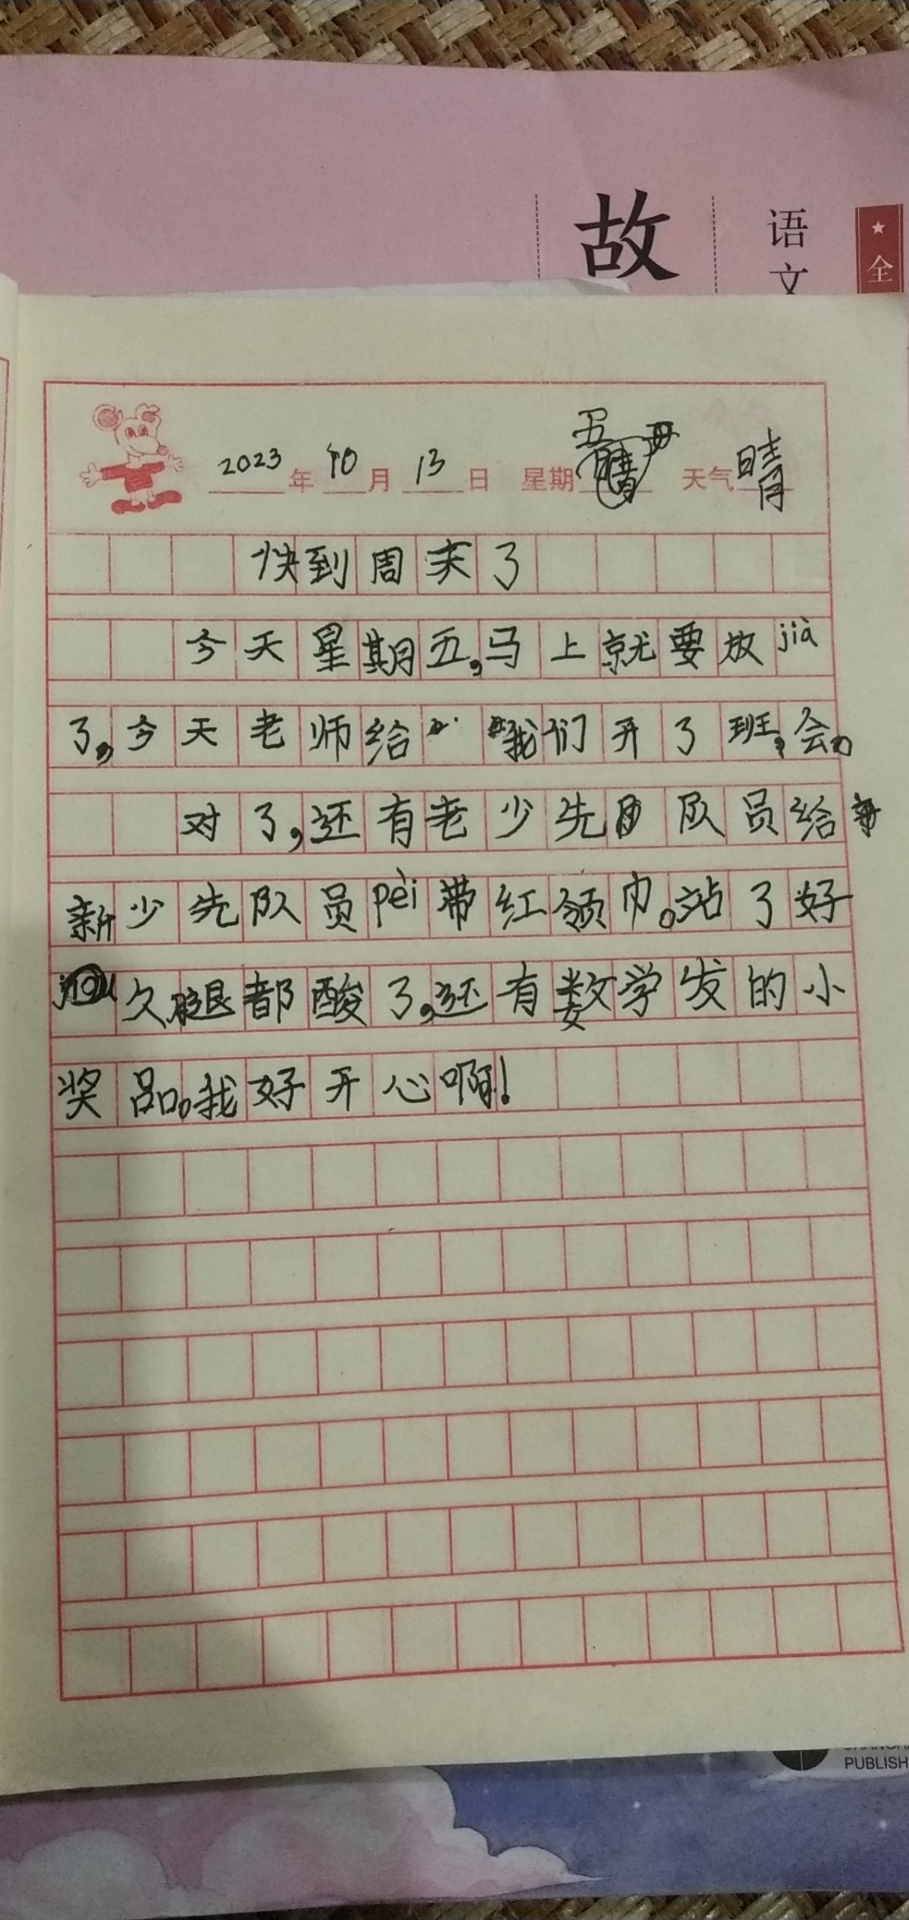 故
语文
全
2023年10月13日 星期五 天气晴
快到周末了
今天星期五,马上就要放jià
了,今天老师给我们开了班会。
对了,还有老少先队员给
新少先队员pèi带红领巾。站了好
久腿都酸了,还有数学发的小
奖品。我好开心啊!
PUBLISH